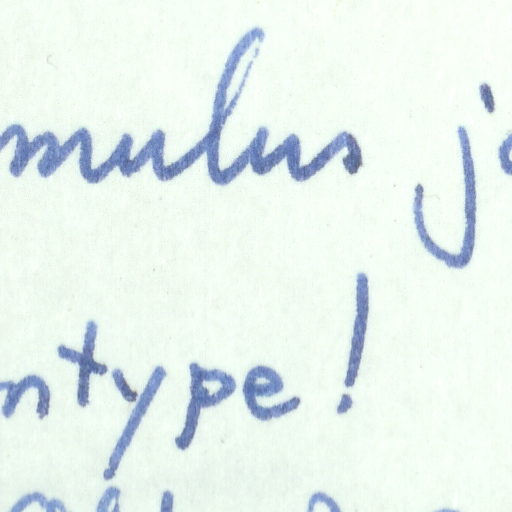 mulus j
ntype!